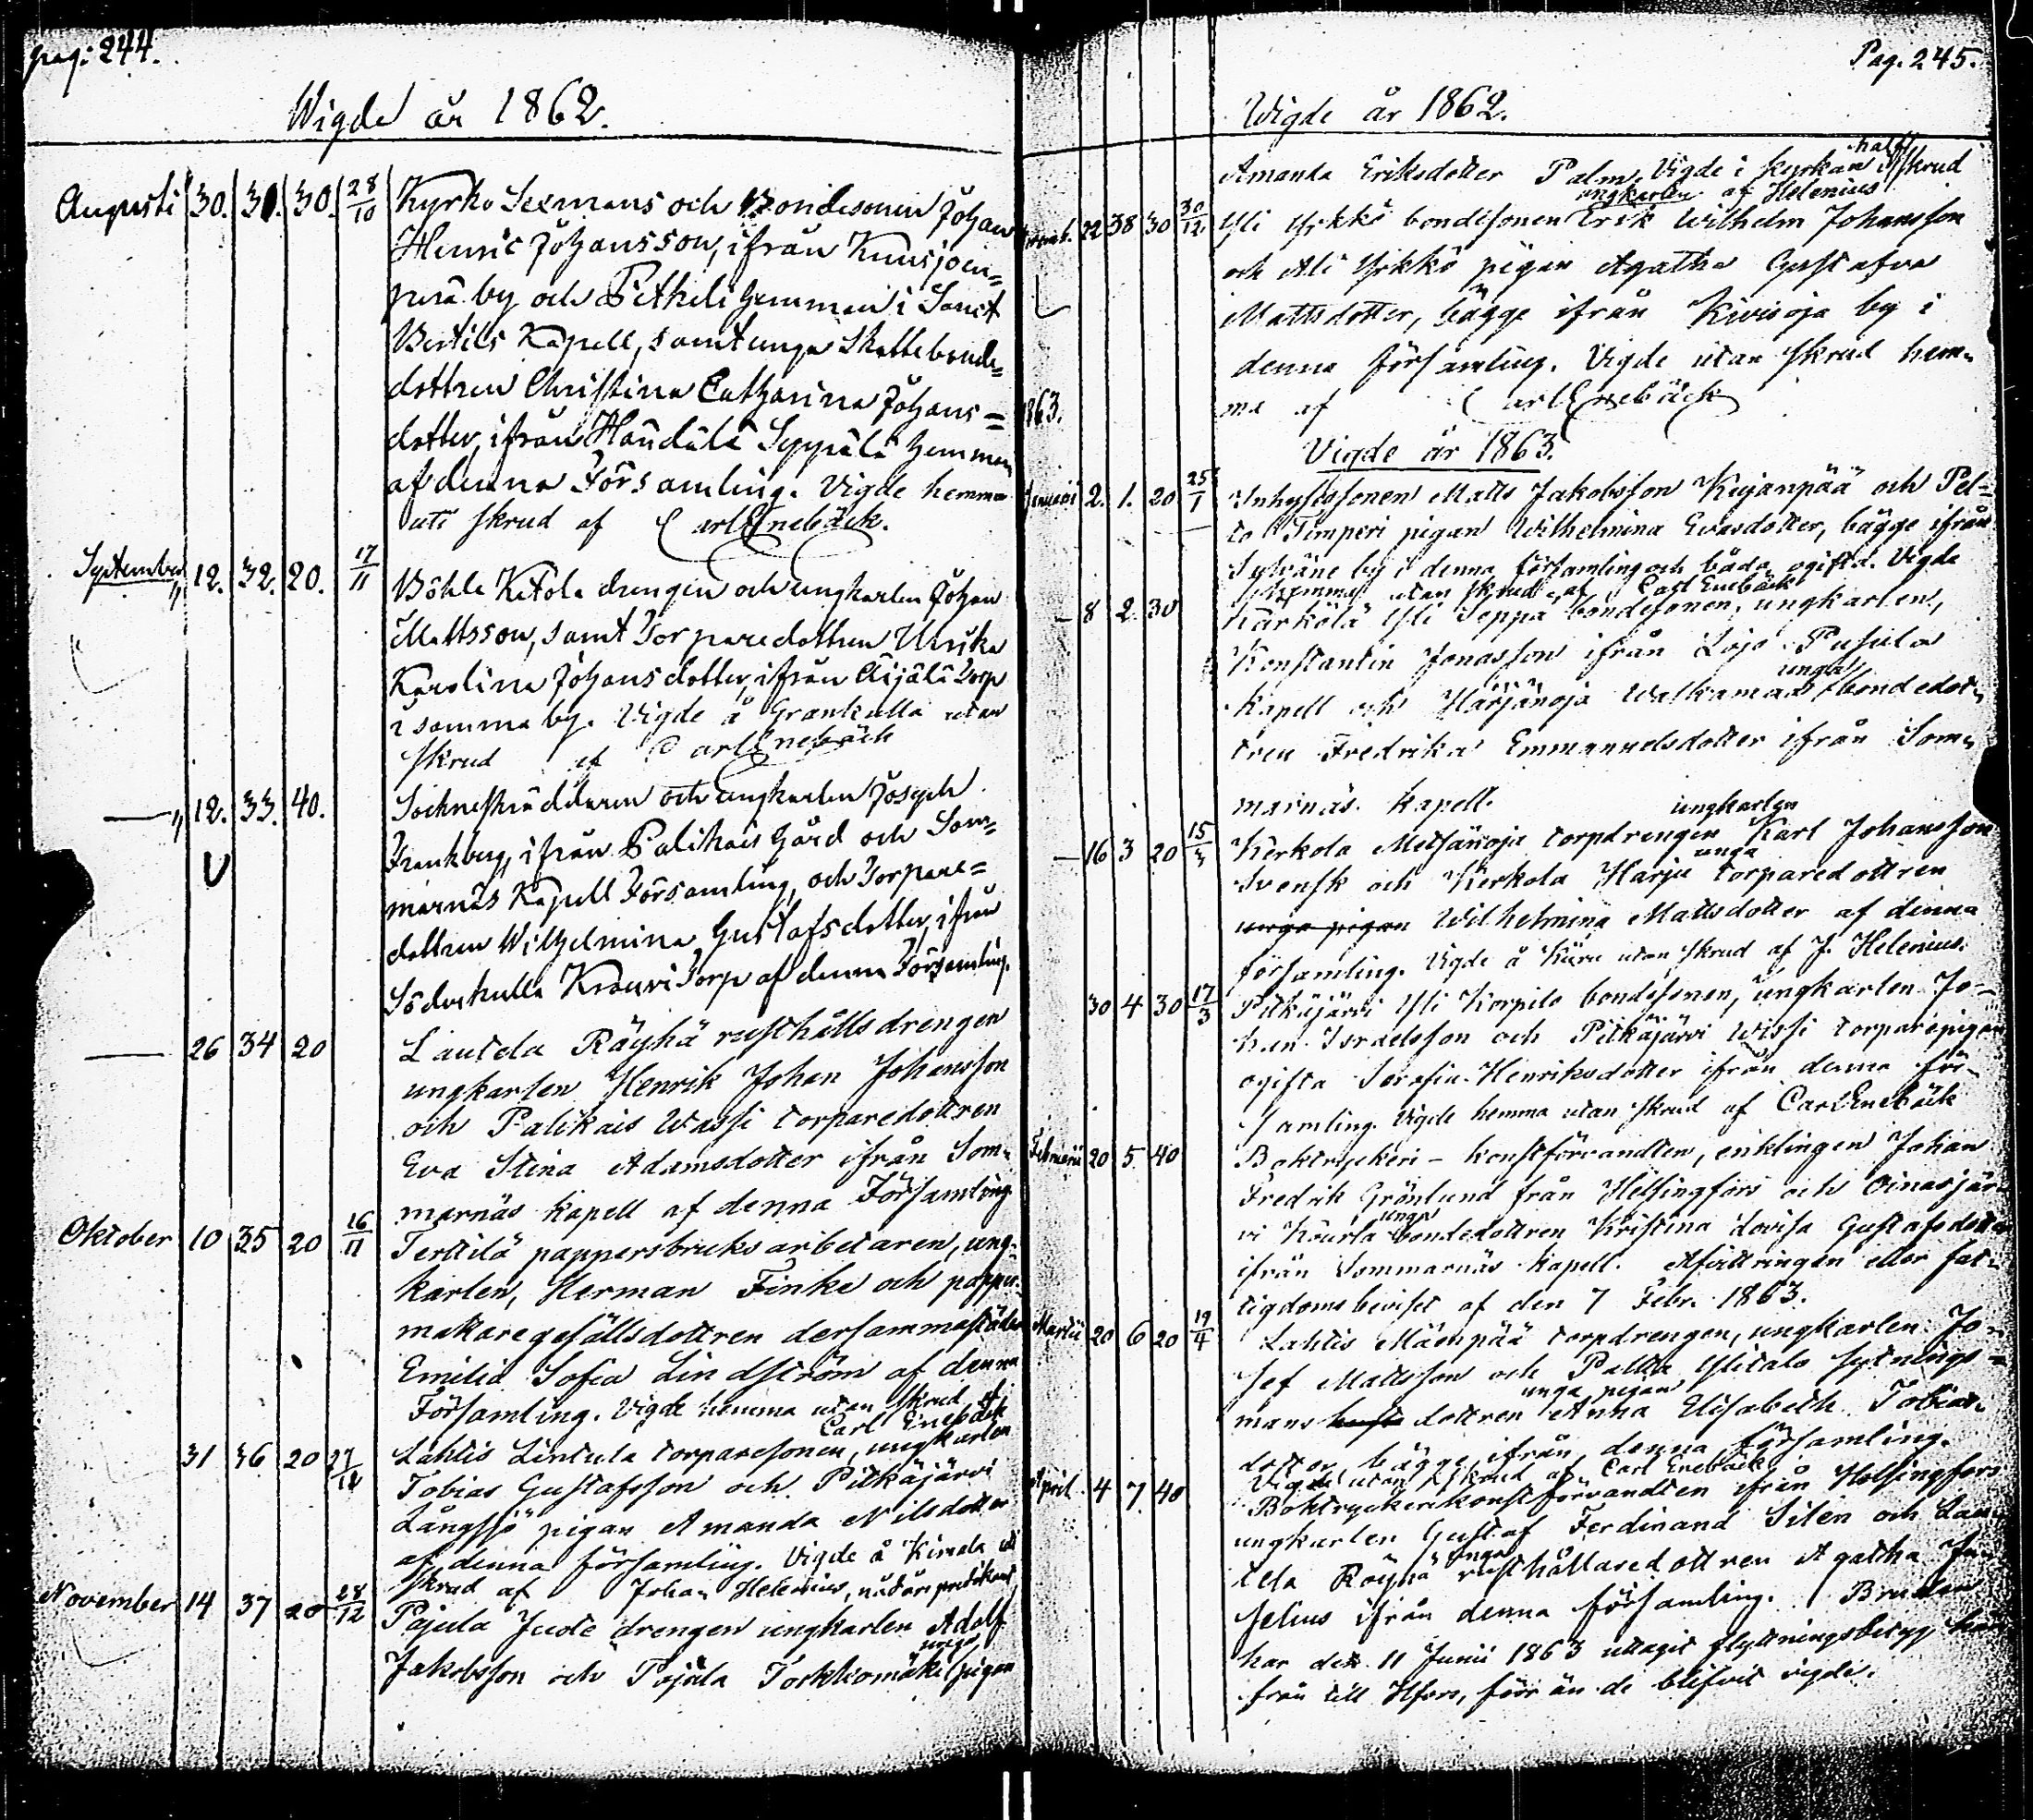 pag: 244.
Wigde år 1862.
Augusti 30. 31. 30. 28/10 Kyrko Sexmans och Bondesonen Johan
Henric Johansson, ifrån Kuusjoen-
perä by och Petheli hemman i Sanct
Bertils Kapell, samt unga Skattebonde-
dottren Christina Catharina Johans=
dotter, ifrån Haudala Seppälä hemman
af denna Församling. Vigde hemma
uti skrud af Carl Enebäck.
September 12. 32. 20. 17/11 Böhle Ketola drengen och ungkarlen Johan
Mattsson, samt Torparedottren Ulrika
Karolina Johansdotter, ifrån Äijälä Torp
i samma by. Vigde å Grankulla utan
skrud af Carl Enebäck
— " 12. 33. 40. Sockneskräddaren och ungkarlen Joseph
Frankberg, ifrån Palikais Gård och Som=
marnäs Kapell Församling, och Torpare=
dottren Wilhelmina Gustafsdotter, ifrån
Söderkulla Krouvi Torp af denna Församling.
— 26 34 20 Lautela Räyhä rusthållsdrengen
ungkarlen Henrik Johan Johansson
och Palikais Wassi torparedottren
Eva Stina Adamsdotter ifrån Som-
marnäs kapell af denna Församling
Oktober 10 35 20 16/11 Terttilä pappersbruksarbetaren, ung-
karlen, Herman Finke och pappers-
makaregesällsdottren dersammastädes
Emilia Sofia Lindström af denna
Församling. Vigde hemma utan skrud af
Carl Enebäck
31 36 20 27/12 Lahtis Lintula torparesonen, ungkarlen
Tobias Gustafsson och Pitkäjärvi
Långsjö pigan Amanda Nilsdotter
af denna församling. Vigde å Kimala uti
skrud af Johan Helenius, nådårspredikant
November 14 37 20 28/12 Pajula Juote drengen ungkarlen Adolf
unga
Jakobsson och Pajula Torkkomäki pigan
Pag. 245.
Wigde år 1862.
half
Amanda Eriksdotter Palm. Vigde i kyrkan i skrud
ungkarlen af Helenius
22 38 30 30/12 Yli Yrkkö bondesonen Erik Wilhelm Johansson
och Ali Yrkkö pigan Agatha Gustafva
Mattsdotter, bägge ifrån Kivisoja by i
denna församling. Vigde utan skrud hem-
ma af Carl Enebäck
1863.
Vigde år 1863.
Januari 2. 1. 20 25/1 Inhysessonen Matts Jakobsson Kujanpää och Pel-
to Timperi pigan Wilhelmina Evasdotter, bägge ifrån
Sylväne by i denna församling och båda ogifta. Vigde
hemma utan skrud af Carl Enebäck
— 8 2 30 Kärkölä Yli Seppä bondesonen, ungkarlen,
Konstantin Jonasson ifrån Lojo Pusula
unga
Kapell och Härjänoja Walkamaa bondedot-
tren Fredrika Emmanuelsdotter ifrån Som-
marnäs kapell.
ungkarlen
— 16 3 20 15/3 Kerkola Metsänoja torpdrengen Karl Johansson
unga
Svensk och Kerkola Harju torparedottren
unga pigan Wilhelmina Mattsdotter af denna
församling. Vigde å Kärä utan skrud af J. Helenius.
30 4 30 17/3 Pitkäjärvi Yli Korpilo bondesonen, ungkarlen Jo-
han Israelsson och Pitkäjärvi Wissi torparepigan
ogifta Serafia Henriksdotter ifrån denna för-
samling. Vigde hemma utan skrud af Carl Enebäck
Februarii 20 5. 40 Boktryckeri-konstförvandten, enklingen Johan
Fredrik Grönlund från Helsingfors och Oinasjär-
unga
vi Kourla bondedottren Kristina Lovisa Gustafsdotter
ifrån Sommarnäs kapell. Afvittringen eller fat-
tigdomsbeviset af den 7 Febr. 1863.
Martii 20 6 20 19/4 Lahtis Mäenpää torpdrengen, ungkarlen Jo-
sef Mattsson och Paltta Ylitalo sytnings-
unga pigan
mans dottren Anna Elisabeth Tobias-
dotter, bägge ifrån denna församling.
Vigde utan skrud af Carl Enebäck
April 4 7 40 Boktryckerikonstförvandten ifrån Helsingfors
ungkarlen Gustaf Ferdinand Silen och Lau-
unga
tela Räyhä rusthållaredottren Agatha
Selius ifrån denna församling. Bruden
har den 11 Junii 1863 uttagit flyttningsbetyg här-
från till Hfors, förr än de blifvit vigde.